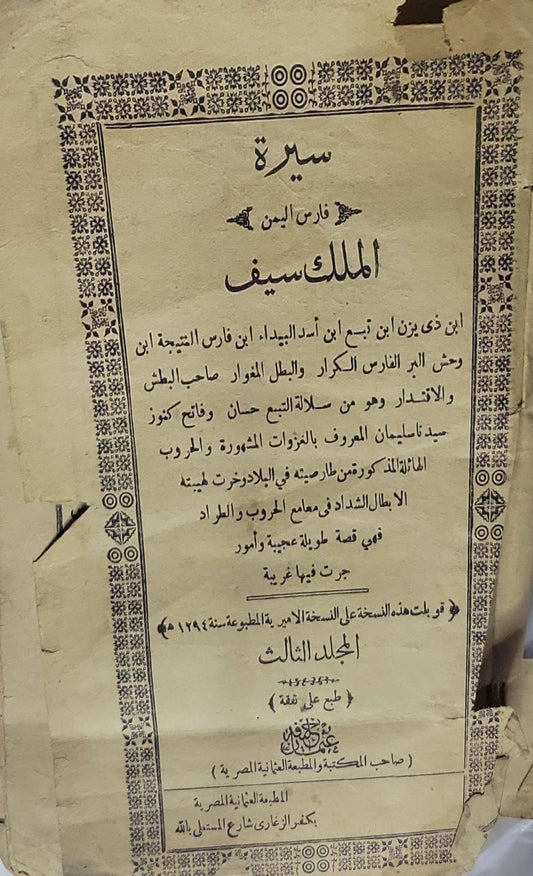 سيرة
فارس اليمن
الملك سيف
ابن ذى يزن ابن تبع ابن أسد البيداء ابن فارس المنتيجة ابن
وحش البر الفارس الكرار والبطل المغوار صاحب البطش
والاقتدار وهو من سلالة التبع حسان وفاتح كنوز
سيدنا سليمان المعروف بالغزوات المشهورة والحروب
الهائلة المذكورة من طار صيته في البلاد وخرت لهيبته
الابطال الشداد فى معامع الحروب والطراد
فهي قصة طويلة عجيبة وأمور
جرت فيها غريبة
﴿ قوبلت هذه النسخة على النسخة الاميرية المطبوعة سنة ١٢٩٤ هـ ﴾
المجلد الثالث
﴿ طبع على نفقة ﴾
عثمان خليفة
( صاحب المكتبة والمطبعة العثمانية المصرية )
المطبعة العثمانية المصرية
بكفر الزغارى شارع المستعلى بالله